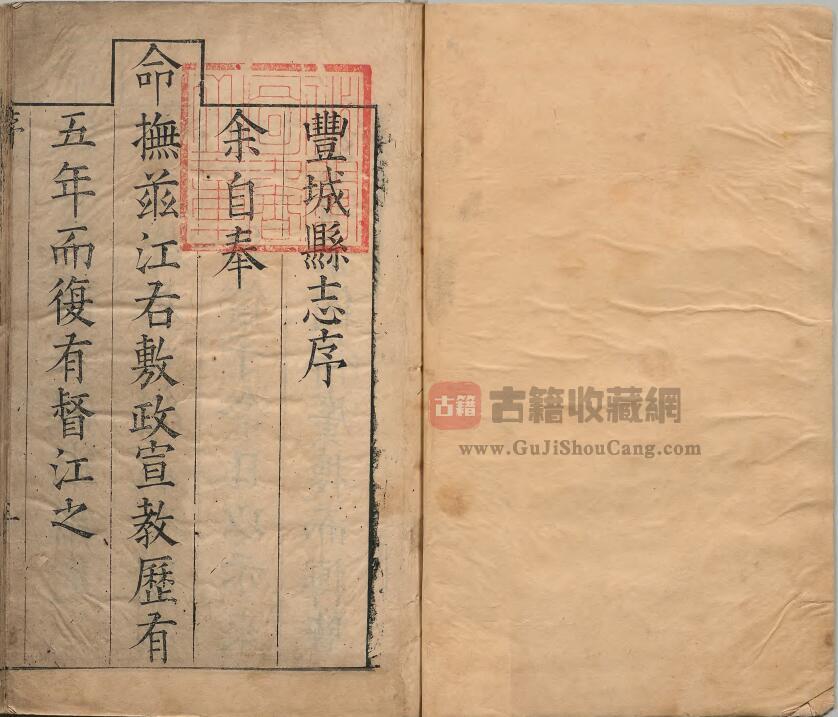 豐城縣志序
余自奉
命撫茲江右敷政宣教歷有
五年而復有督江之
序
一
古籍
古籍收藏網
www.GuJiShouCang.com